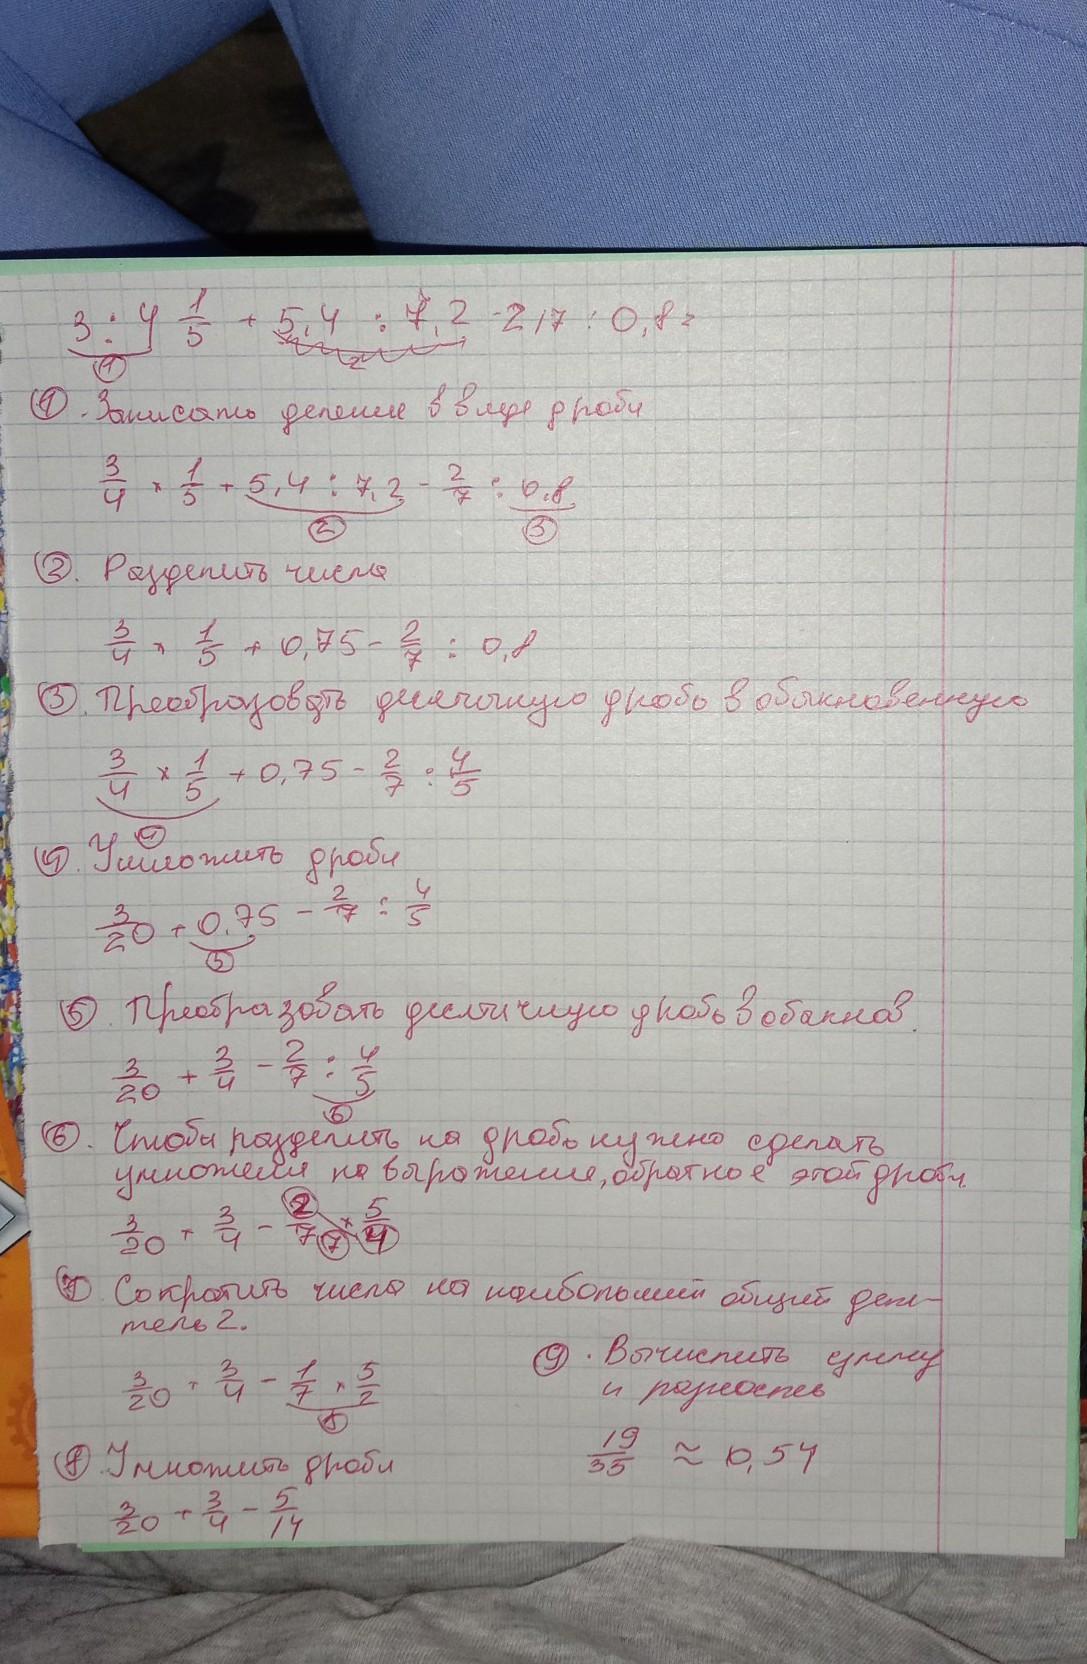 3 : 4 1/5 + 5,4 : 7,2 - 2/7 : 0,8 =
① 2
①. Записать деление в виде дроби
3/4 × 1/5 + 5,4 : 7,2 - 2/7 : 0,8
② ③
②. Разделить числа
3/4 × 1/5 + 0,75 - 2/7 : 0,8
③. Преобразовать десятичную дробь в обыкновенную
3/4 × 1/5 + 0,75 - 2/7 : 4/5
④
④. Умножить дроби
3/20 + 0,75 - 2/7 : 4/5
⑤
⑤ Преобразовать десятичную дробь в обыкнов.
3/20 + 3/4 - 2/7 : 4/5
⑥
⑥. Чтобы разделить на дробь нужно сделать
умножели на выражение, обратное этой дроби.
3/20 + 3/4 - 2/7 × 5/4
⑦
⑦ Сократить числа на наибольший общий дели-
тель 2.
3/20 + 3/4 - 1/7 × 5/2
⑧
⑧ Умножить дроби
3/20 + 3/4 - 5/14
⑨. Вычислить сумму
и разность
19/35 ≈ 0,54